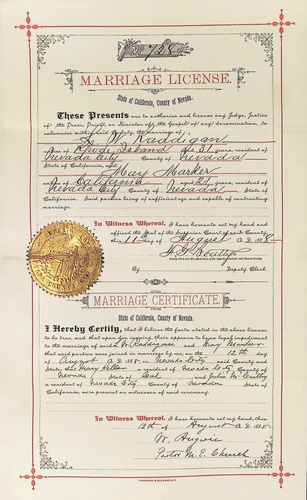 No 728
MARRIAGE LICENSE.
State of California, County of Nevada.
These Presents are to authorize and license any Judge, Justice
of the Peace, Priest, or Minister of the Gospel of any denomination, to
solemnize within said County, the marriage of
W. Raddigan
of Rhode Island aged 31 years, resident of
Nevada City County of Nevada
State of California, and
May Marker
of California aged 21 years, resident of
Nevada City County of Nevada
State of California. Said parties being of sufficient age and capable of contracting
marriage.
In Witness Whereof, I have hereunto set my hand and
affixed the Seal of the Superior Court of said County,
this 11 day of August A.D. 1888
Deputy Clerk
By
MARRIAGE CERTIFICATE.
State of California, County of Nevada.
I Hereby Certify, that I believe the facts stated in the above license
to be true, and that upon joining their appears to have legal impediment
to the marriage of said W Raddigan and May Marker
that said parties were joined in marriage by me, on the 12th day
of August A.D. 1888, in Nevada City said County and
State; that Henry a resident of Nevada City County of
Nevada State of Cal and Julia M.
a resident of Nevada City County of Nevada State of
California, were present as witnesses of said ceremony.
In Witness Whereof, I have hereunto set my hand, this
12th of August A.D. 1888
Pastor M. E. Church